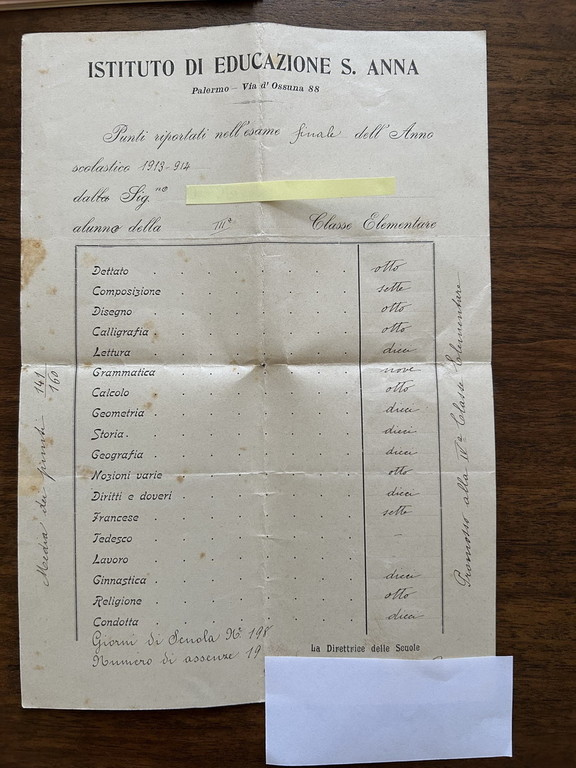 ISTITUTO DI EDUCAZIONE S. ANNA
Palermo - Via d'Ossuna 88
Punti riportati nell'esame finale dell'Anno
scolastico 1913-914
dallo Sig.no
alunno della IIIa Classe Elementare
Dettato otto
Composizione sette
Disegno otto
Calligrafia otto
Lettura dieci
Grammatica nove
Calcolo otto
Geometria dieci
Storia dieci
Geografia dieci
Nozioni varie otto
Diritti e doveri dieci
Francese sette
Tedesco -
Lavoro
Ginnastica dieci
Religione otto
Condotta dieci
Giorni di Scuola No. 198
Numero di assenze 19
La Direttrice delle Scuole
Media dei punti 141/160
Promosso alla IVa Classe Elementare